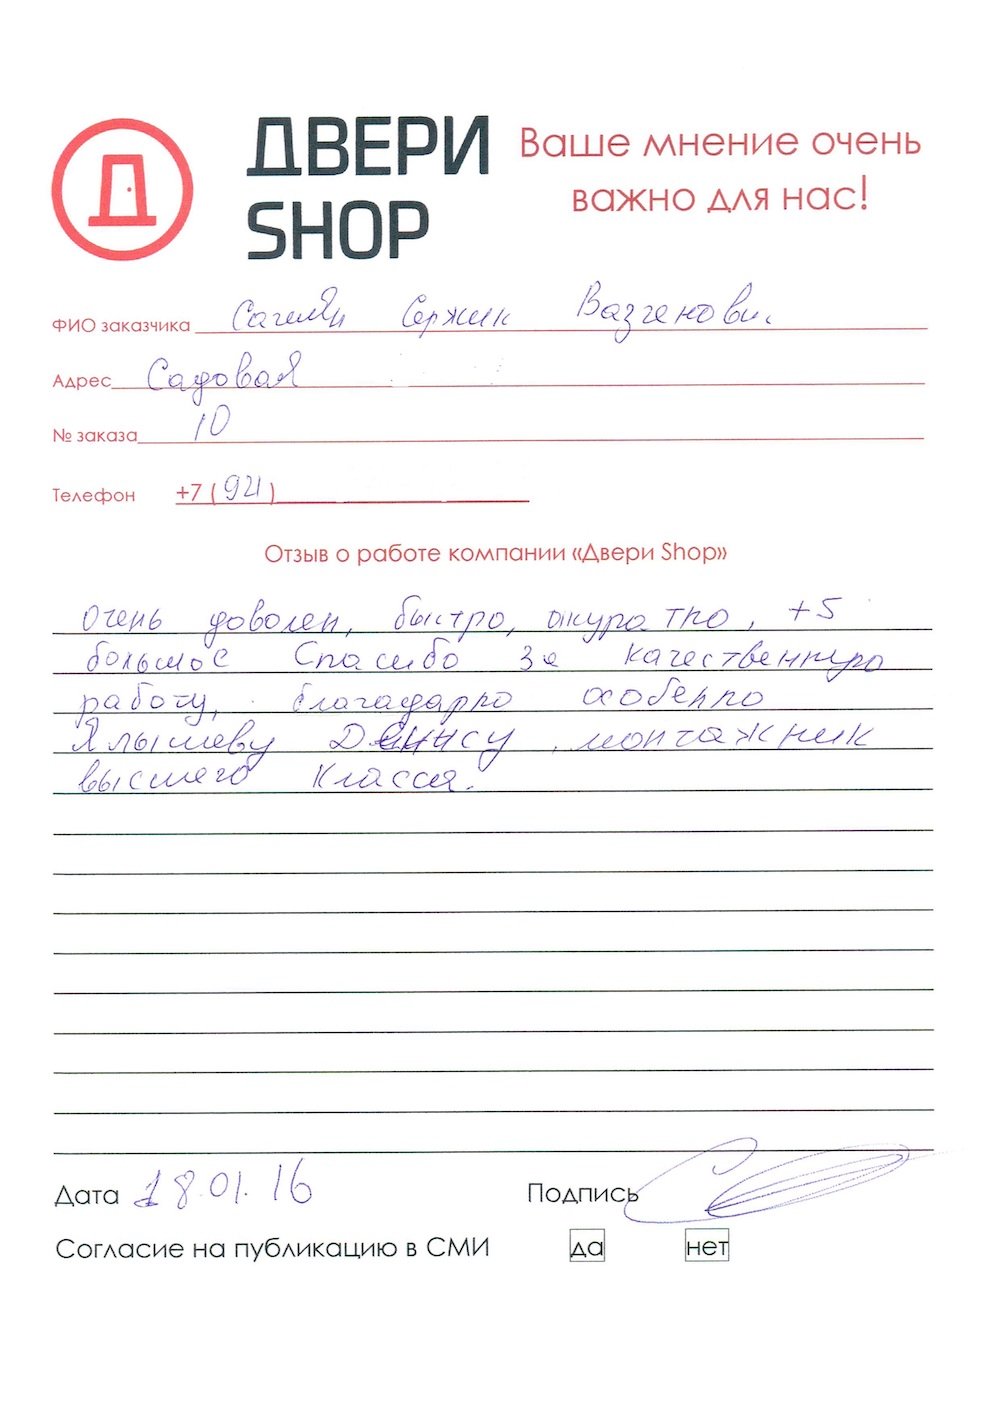 ДВЕРИ
SHOP
Ваше мнение очень
важно для нас!
ФИО заказчика Сагиян Сержик Вазгенови.
Адрес Садовая
№ заказа 10
Телефон +7 (921)
Отзыв о работе компании «Двери Shop»
Очень доволен, быстро, акуратно, +5
большое Спасибо за качественную
работу, благадарно особенно
Ялышеву Денису, монтажник
высшего класса.
Дата 18.01.16 Подпись
Согласие на публикацию в СМИ да нет